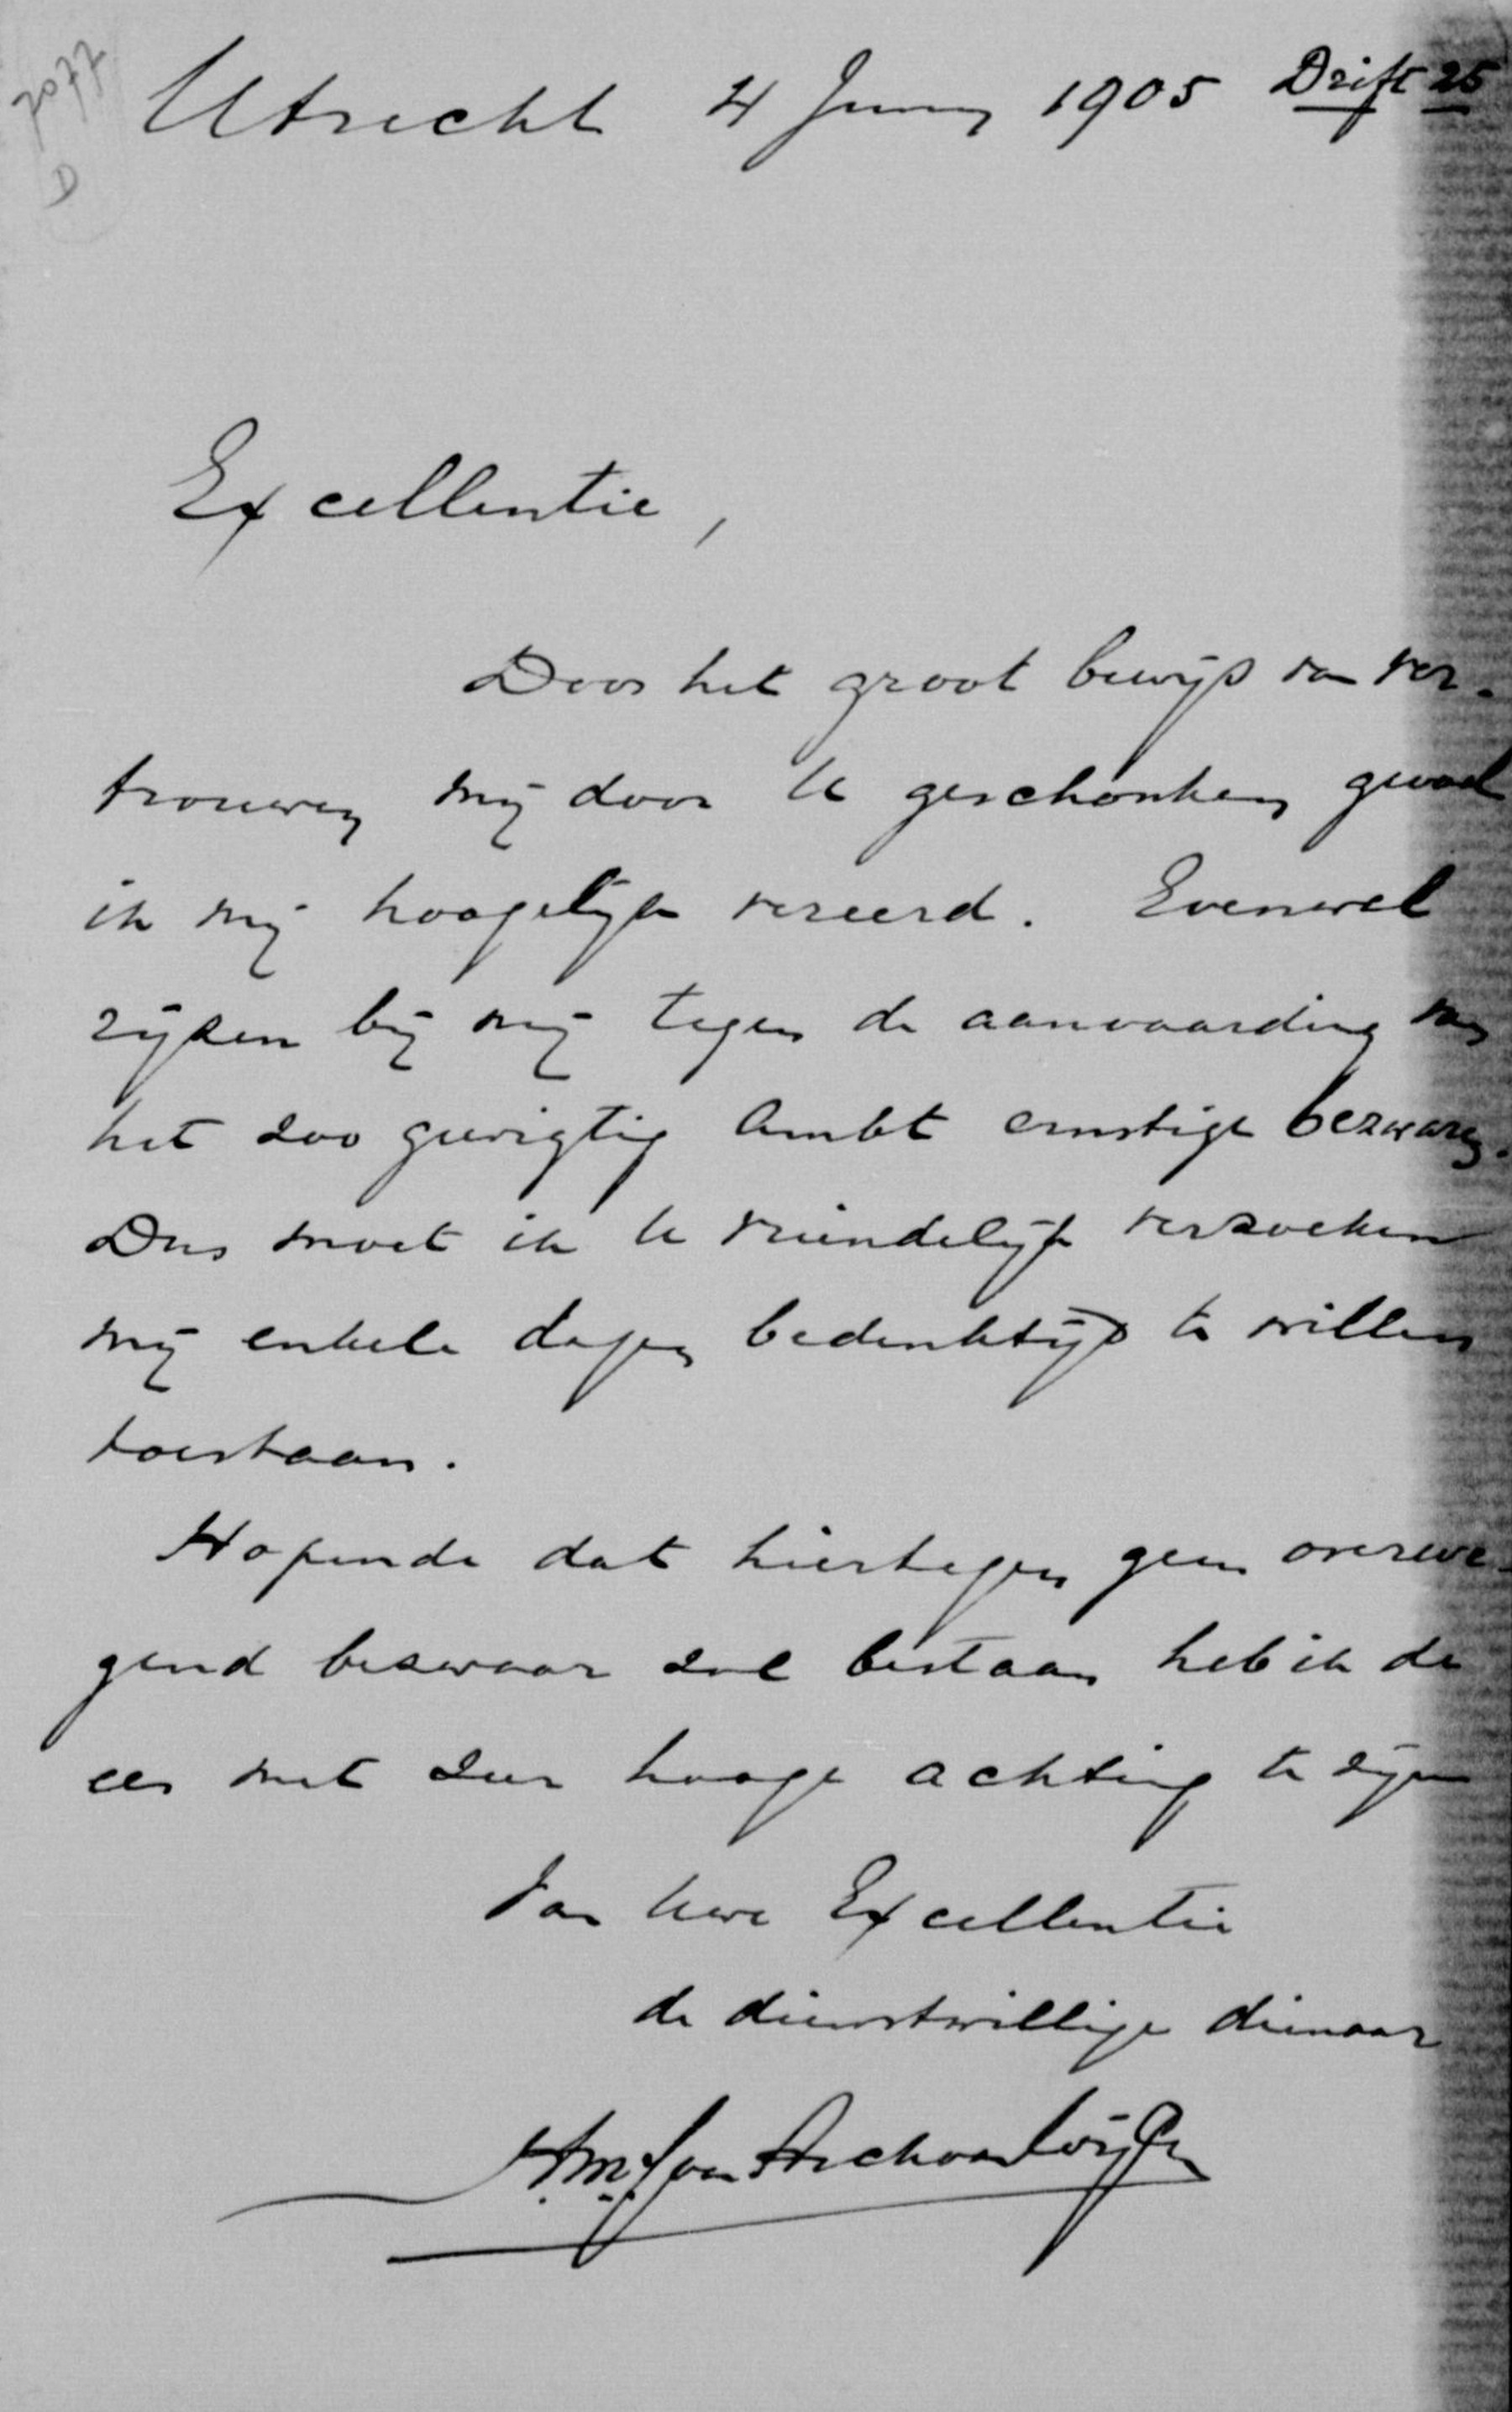 7077
D
Utrecht 4 Juny 1905 Drift 25
Excellentie,
Door het groot bewijs van ver-
trouwen mij door U geschonken gevoel
ik mij hoogelijk vereerd. Evenwel
rijzen bij mij tegen de aanvaarding van
het zoo gewigtig Ambt ernstige bezwaren.
Dus moet ik U vriendelijk verzoeken
mij enkele dagen bedenktijd te willen
toestaan.
Hopende dat hiertegen geen overwe-
gend bezwaar zal bestaan heb ik de
eer met zeer hooge achting te zijn
Van Uwe Excellentie
de dienstwillige dienaar
H.M.J. van Asch van Wijck